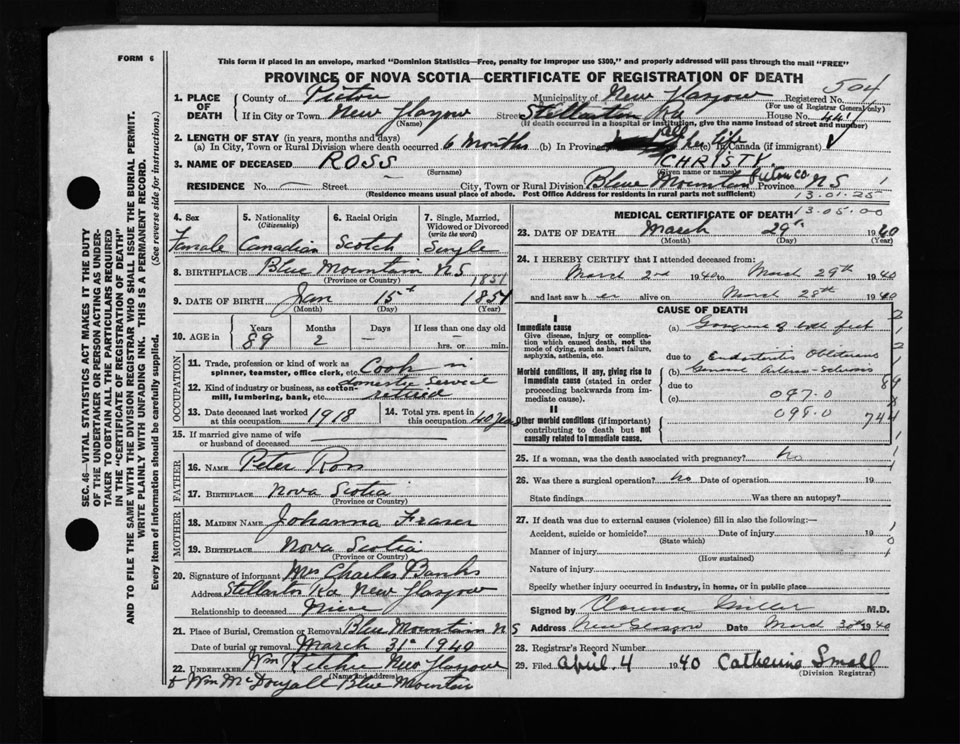 FORM 6
This form if placed in an envelope, marked "Dominion Statistics—Free, penalty for improper use $300," and properly addressed will pass through the mail "FREE"
PROVINCE OF NOVA SCOTIA—CERTIFICATE OF REGISTRATION OF DEATH
504
1. PLACE OF DEATH County of Pictou Municipality of New Glasgow Registered No.
(For use of Registrar General only)
If in City or Town New Glasgow Street Stellarton Rd House No. 441
(Name) (If death occurred in a hospital or institution, give the name instead of street and number)
2. LENGTH OF STAY (in years, months and days)
(a) In City, Town or Rural Division where death occurred 6 Months (b) In Province all her life (c) In Canada (if immigrant)
3. NAME OF DECEASED ROSS CHRISTY
(Surname) (Given name or names)
RESIDENCE No. — Street City, Town or Rural Division Blue Mountain Pictou Co Province NS
(Residence means usual place of abode. Post Office Address for residents in rural parts not sufficient)
13.05.00
4. Sex 5. Nationality (Citizenship) 6. Racial Origin 7. Single, Married, Widowed or Divorced (write the word)
Female Canadian Scotch Single
8. BIRTHPLACE Blue Mountain NS
(Province or Country)
1851
9. DATE OF BIRTH Jan 15th 1851
(Month) (Day) (Year)
10. AGE in Years Months Days If less than one day old
89 2 — — hrs. or min.
OCCUPATION
11. Trade, profession or kind of work as spinner, teamster, office clerk, etc. Cook in
12. Kind of industry or business, as cotton-mill, lumbering, bank, etc. domestic service retired
13. Date deceased last worked at this occupation 1918 14. Total yrs. spent in this occupation 40 years
15. If married give name of wife or husband of deceased
FATHER
16. NAME Peter Ross
17. BIRTHPLACE Nova Scotia
(Province or Country)
MOTHER
18. MAIDEN NAME Johanna Fraser
19. BIRTHPLACE Nova Scotia
(Province or Country)
20. Signature of informant Mrs Charles Banks
Address Stellarton Rd New Glasgow
Relationship to deceased Niece
21. Place of Burial, Cremation or Removal Blue Mountain NS
Date of burial or removal March 31st 1940
22. UNDERTAKER Wm Ritchie New Glasgow
(Name and address)
& Wm McDougall Blue Mountain
MEDICAL CERTIFICATE OF DEATH
23. DATE OF DEATH March 29th 1940
(Month) (Day) (Year)
24. I HEREBY CERTIFY that I attended deceased from:
March 2nd 1940 to March 29th 1940
and last saw her alive on March 28th 1940
CAUSE OF DEATH
I
Immediate cause
Give disease, injury or complication which caused death, not the mode of dying, such as heart failure, asphyxia, asthenia, etc.
(a) Gangrene of both feet
due to Endarteritis Obliterans
Morbid conditions, if any, giving rise to immediate cause (stated in order proceeding backwards from immediate cause).
(b) General Arterio-Sclerosis
due to
(c) 097.0
099.0
II
Other morbid conditions (if important) contributing to death but not causally related to immediate cause.
25. If a woman, was the death associated with pregnancy? no
26. Was there a surgical operation? no Date of operation 19
State findings Was there an autopsy?
27. If death was due to external causes (violence) fill in also the following:—
Accident, suicide or homicide? Date of injury 19
(State which)
Manner of injury
(How sustained)
Nature of injury
Specify whether injury occurred in industry, in home, or in public place
Signed by Clarence Miller M.D.
Address New Glasgow Date March 30th 1940
28. Registrar's Record Number
29. Filed April 4 1940 Catherine Small
(Division Registrar)
SEC. 46—VITAL STATISTICS ACT MAKES IT THE DUTY
OF THE UNDERTAKER OR PERSON ACTING AS UNDER-
TAKER TO OBTAIN ALL THE PARTICULARS REQUIRED
IN THE "CERTIFICATE OF REGISTRATION OF DEATH"
AND TO FILE THE SAME WITH THE DIVISION REGISTRAR WHO SHALL ISSUE THE BURIAL PERMIT.
WRITE PLAINLY WITH UNFADING INK. THIS IS A PERMANENT RECORD.
Every item of information should be carefully supplied. (See reverse side for instructions.)